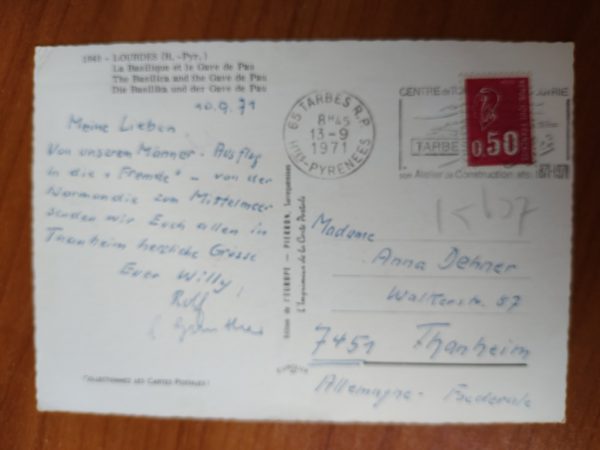 1841 - LOURDES (H.-Pyr.)
La Basilique et le Gave de Pau
The Basilica and the Gave de Pau
Die Basilika und der Gave de Pau
10.9.71
Meine Lieben.
Von unserem Männer-Ausflug
in die "Fremde" - von der
Normandie zum Mittelmeer
senden wir Euch allen in
Thanheim herzliche Grüsse
Euer Willy!
Rolf
COLLECTIONNEZ LES CARTES POSTALES !
Editions de l'EUROPE - PIERRON, Sarreguemines
L'Imprimeur de la Carte Postale
EUROPE
65 TARBES R.P.
8H45
13-9
1971
HTES-PYRENEES
CENTRE
TARBES
son Atelier de Construction
0,50
Madame
Anna Dehner
Walkenstr. 87
7451 Thanheim
Allemagne - Federale